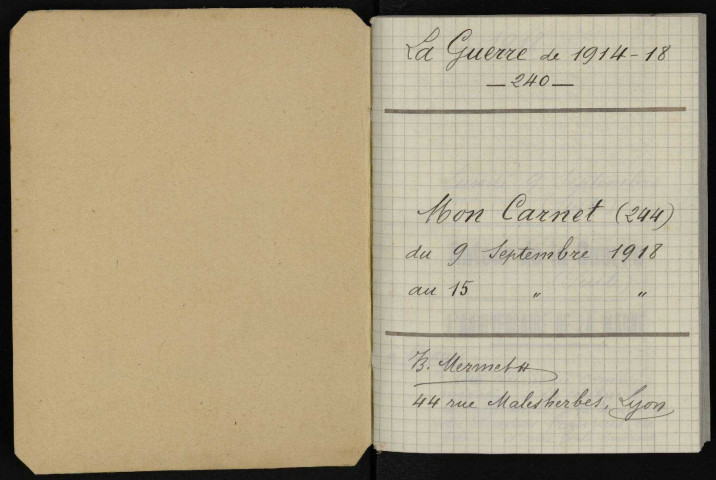 La Guerre de 1914-18
— 240 —
Mon Carnet (244)
du 9 Septembre 1918
au 15 " "
B. Mermet
44 rue Malesherbes, Lyon